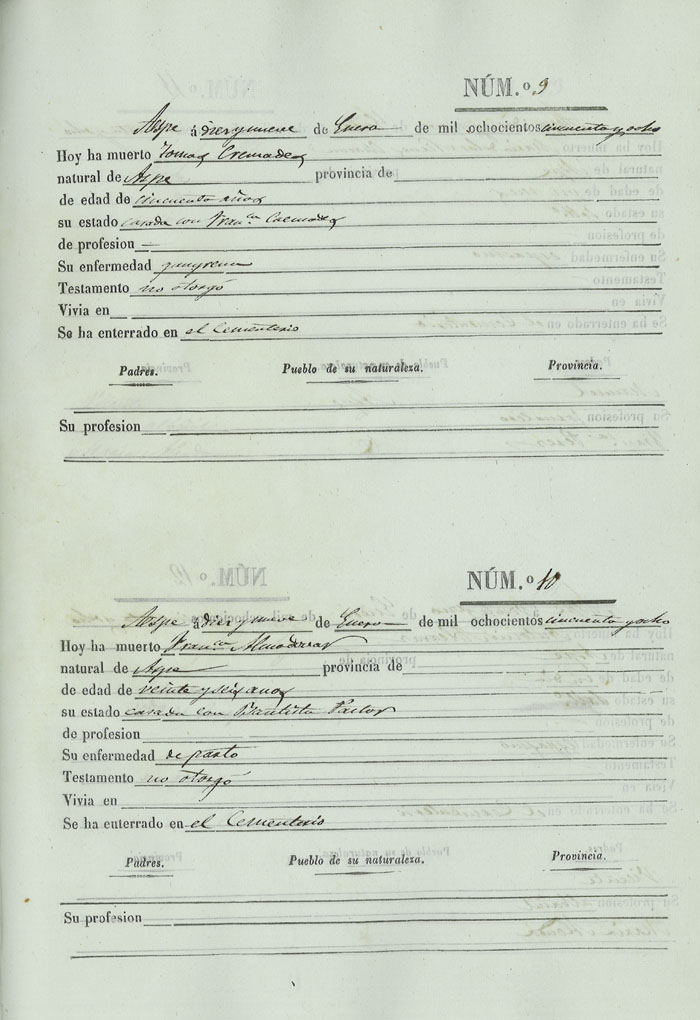 NÚM.º 9
Aspe á diez y nueve de Enero de mil ochocientos cincuenta y ocho
Hoy ha muerto Tomas Cremades
natural de Aspe provincia de
de edad de cincuenta años
su estado casada con Fran.ca Cremades
de profesion
Su enfermedad gangrena
Testamento no otorgó
Vivia en
Se ha enterrado en el Cementerio
Padres. Pueblo de su naturaleza. Provincia.
Su profesion
NÚM.º 10
Aspe á diez y nueve de Enero de mil ochocientos cincuenta y ocho
Hoy ha muerto Fran.ca Almodovar
natural de Aspe provincia de
de edad de veinte y seis anos
su estado casada con Bautista Pastor
de profesion
Su enfermedad de parto
Testamento no otorgó
Vivia en
Se ha enterrado en el Cementerio
Padres. Pueblo de su naturaleza. Provincia.
Su profesion